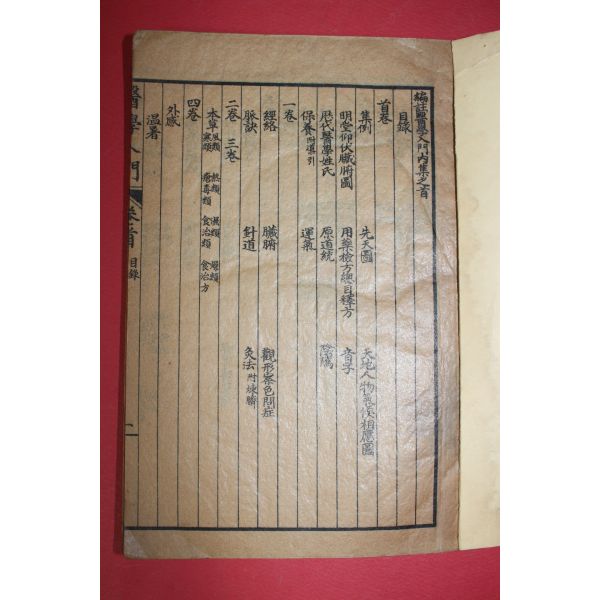 編註醫學入門內集之首
目錄
首卷
集例 先天圖 天地人物氣候相應圖
明堂仰伏臟腑圖 用藥檢方總目釋方 音字
歷代醫學姓氏 原道統 陰隲
保養附導引 運氣
一卷
經絡 臟腑 觀形察色問症
脈訣 針道 灸法附煉臍
二卷 三卷
本草風類 熱類 濕類 燥類
寒類 瘡毒類 食治類 食治方
四卷
外感
溫暑
醫學入門 卷首 目錄 一